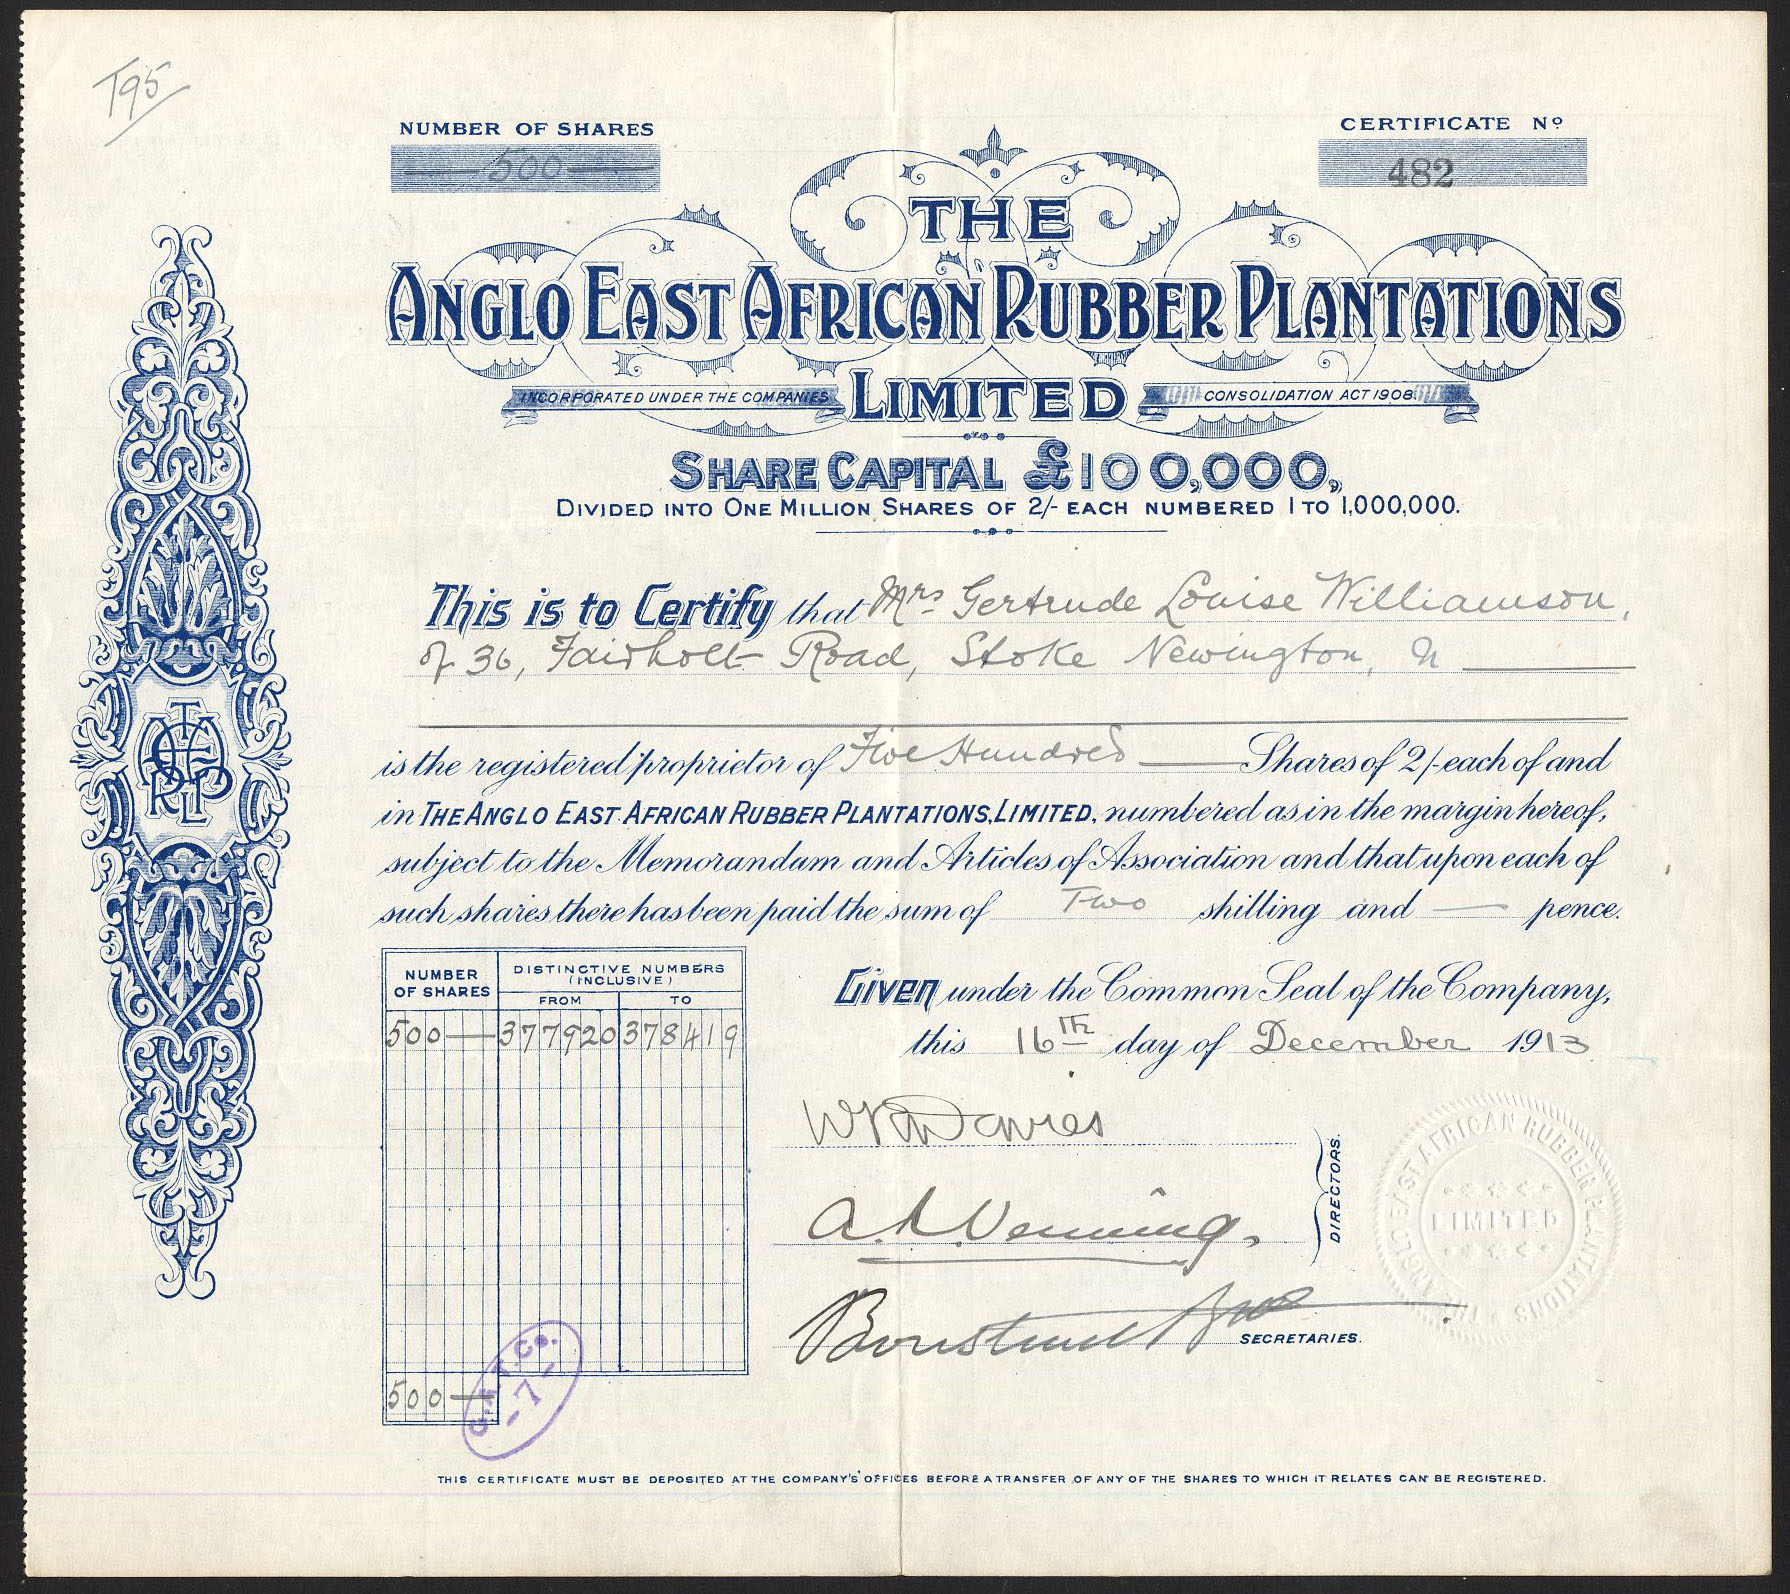 T95
NUMBER OF SHARES
500
CERTIFICATE No
482
THE
ANGLO EAST AFRICAN RUBBER PLANTATIONS
INCORPORATED UNDER THE COMPANIES LIMITED CONSOLIDATION ACT 1908
SHARE CAPITAL £100,000,
DIVIDED INTO ONE MILLION SHARES OF 2/- EACH NUMBERED 1 TO 1,000,000.
This is to Certify that Mrs Gertrude Louise Williamson,
of 36, Fairholt Road, Stoke Newington, N
is the registered proprietor of Five Hundred Shares of 2/- each of and
in THE ANGLO EAST AFRICAN RUBBER PLANTATIONS, LIMITED, numbered as in the margin hereof,
subject to the Memorandum and Articles of Association and that upon each of
such shares there has been paid the sum of Two shilling and — pence.
NUMBER OF SHARES
DISTINCTIVE NUMBERS
(INCLUSIVE)
FROM TO
500 — 377920 378419
500 —
G.A.T. Co.
- 7 -
Given under the Common Seal of the Company,
this 16TH day of December 1913
Davies
A. A. Venning.
DIRECTORS.
SECRETARIES.
THE ANGLO EAST AFRICAN RUBBER PLANTATIONS
LIMITED
THIS CERTIFICATE MUST BE DEPOSITED AT THE COMPANY'S OFFICES BEFORE A TRANSFER OF ANY OF THE SHARES TO WHICH IT RELATES CAN BE REGISTERED.